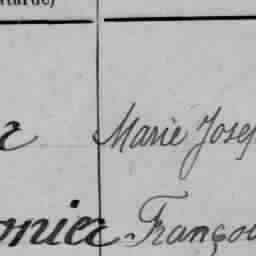 Marie Josep
onier François